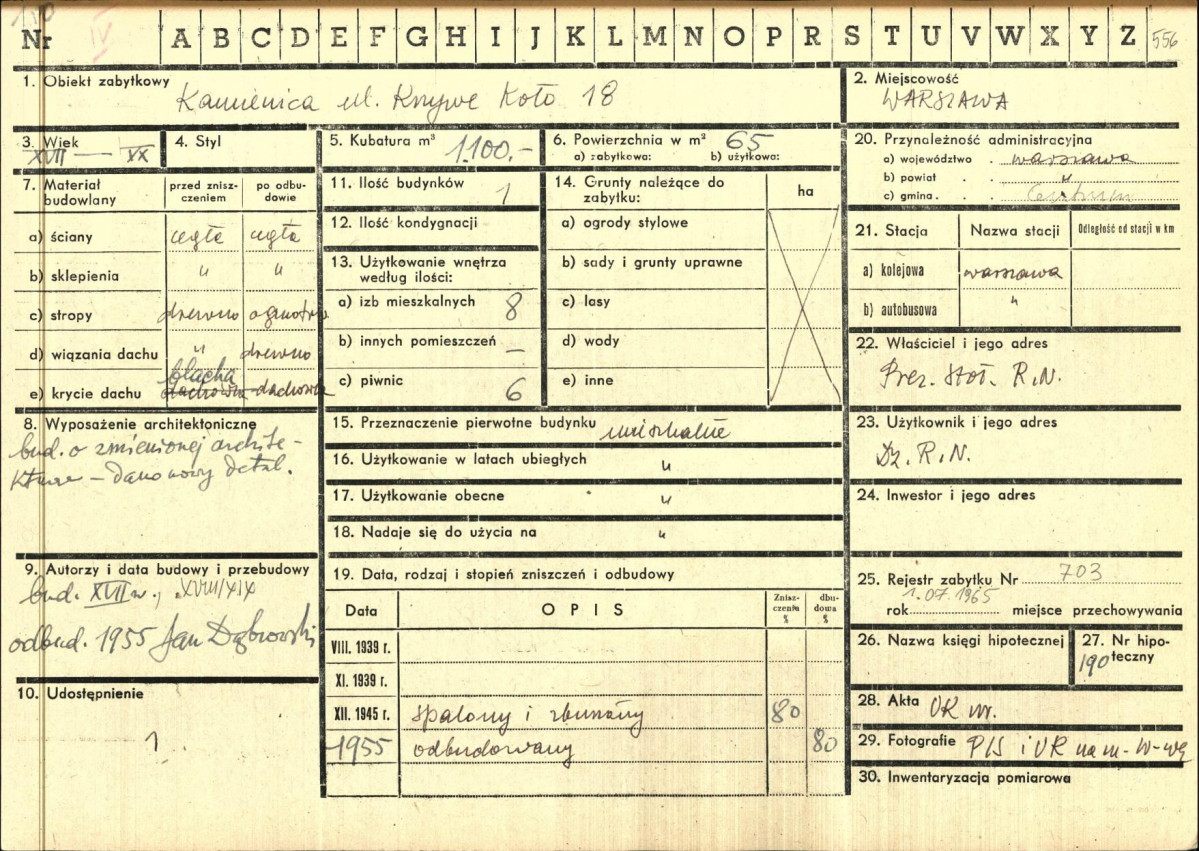 110
Nr IV A B C D E F G H I J K L M N O P R S T U V W X Y Z 556
1. Obiekt zabytkowy
Kamienica ul. Krzywe Koło 18
2. Miejscowość
WARSZAWA
3. Wiek
XVII — XX
4. Styl
5. Kubatura m³ 1.100.-
6. Powierzchnia w m² 65
a) zabytkowa: b) użytkowa:
20. Przynależność administracyjna
a) województwo . warszawa
b) powiat . "
c) gmina . . Centrum
7. Materiał budowlany
przed zniszczeniem
po odbudowie
a) ściany cegła cegła
b) sklepienia " "
c) stropy drewno ogniotrw
d) wiązania dachu " drewno
blacha
e) krycie dachu dachówka dachówka
11. Ilość budynków 1
12. Ilość kondygnacji
13. Użytkowanie wnętrza
według ilości:
a) izb mieszkalnych 8
b) innych pomieszczeń —
c) piwnic 6
14. Grunty należące do
zabytku:
ha
a) ogrody stylowe
b) sady i grunty uprawne
c) lasy
d) wody
e) inne
21. Stacja Nazwa stacji Odległość od stacji w km
a) kolejowa warszawa
b) autobusowa "
22. Właściciel i jego adres
Prez. Stoł. R.N.
8. Wyposażenie architektoniczne
bud. o zmienionej archite-
kturze – dano nowy detal.
15. Przeznaczenie pierwotne budynku mieszkalne
16. Użytkowanie w latach ubiegłych "
17. Użytkowanie obecne "
18. Nadaje się do użycia na "
23. Użytkownik i jego adres
Dz. R.N.
24. Inwestor i jego adres
9. Autorzy i data budowy i przebudowy
bud. XVII w., XVIII/XIX
odbud. 1955 Jan Dąbrowski
10. Udostępnienie
1.
19. Data, rodzaj i stopień zniszczeń i odbudowy
Data OPIS Zniszczenia % dbudowa %
VIII. 1939 r.
XI. 1939 r.
XII. 1945 r. spalony i zburzony 80
1955 odbudowany 80
25. Rejestr zabytku Nr 703
1.07.1965
rok miejsce przechowywania
26. Nazwa księgi hipotecznej
27. Nr hipoteczny
190
28. Akta UK w.
29. Fotografie PIS i UK na m. W-wę
30. Inwentaryzacja pomiarowa